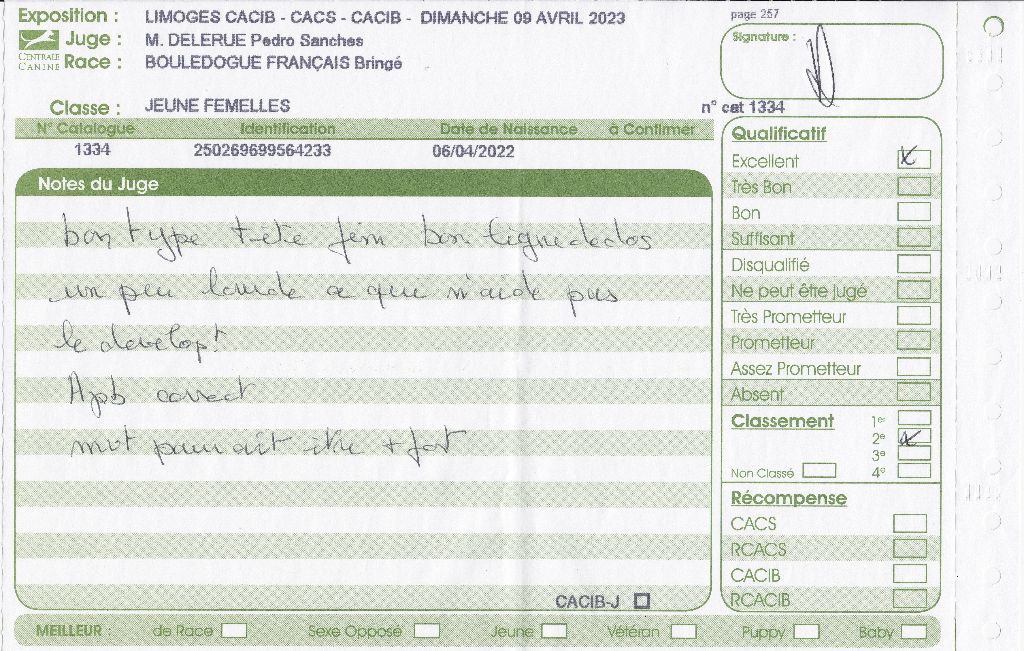 Exposition : LIMOGES CACIB - CACS - CACIB - DIMANCHE 09 AVRIL 2023
page 257
Juge : M. DELERUE Pedro Sanches
Signature :
CENTRALE CANINE
Race : BOULEDOGUE FRANÇAIS Bringé
Classe : JEUNE FEMELLES
n° cat 1334
N° Catalogue Identification Date de Naissance à Confirmer
1334 250269699564233 06/04/2022
Notes du Juge
bon type tête fém bon ligne de dos
un peu lourde ce qui n'aide pas
le develop!
Apb correct
mvt pourrait être + fort
CACIB-J
Qualificatif
Excellent
Très Bon
Bon
Suffisant
Disqualifié
Ne peut être jugé
Très Prometteur
Prometteur
Assez Prometteur
Absent
Classement 1er
2e
3e
Non Classé 4e
Récompense
CACS
RCACS
CACIB
RCACIB
MEILLEUR : de Race Sexe Opposé Jeune Vétéran Puppy Baby